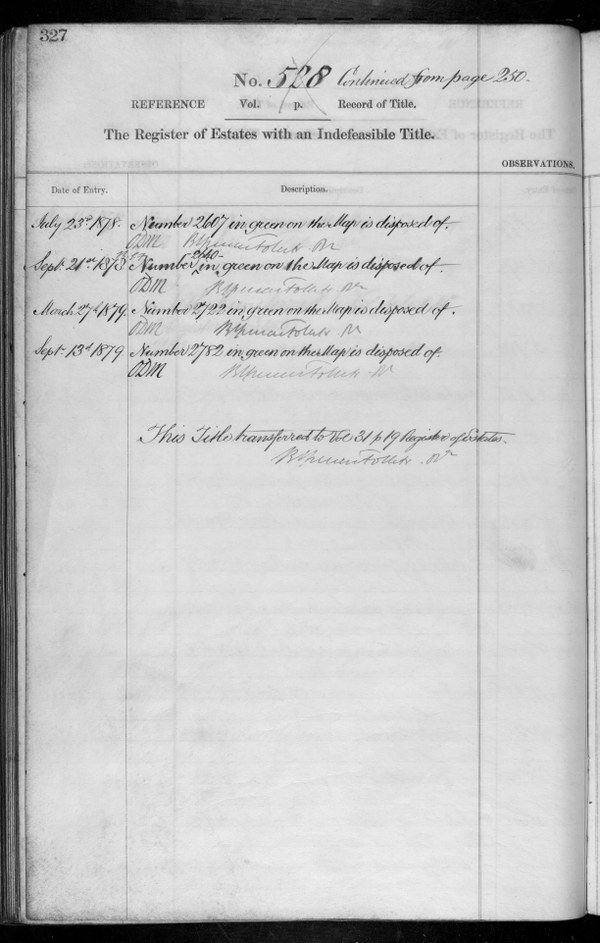 327
No. 528 Continued from page 250.
REFERENCE Vol. p. Record of Title.
The Register of Estates with an Indefeasible Title.
OBSERVATIONS.
Date of Entry. Description.
July 23rd 1878. Number 2607 in green on the Map is disposed of.
ODM
2640
Sept. 21st 1878. Number in green on the Map is disposed of.
ODM
March 27th 1879. Number 2722 in green on the Map is disposed of.
ODM
Sept. 13th 1879. Number 2782 in green on the Map is disposed of.
ODM
This Title transferred to Vol 31 p 19 Register of Estates.